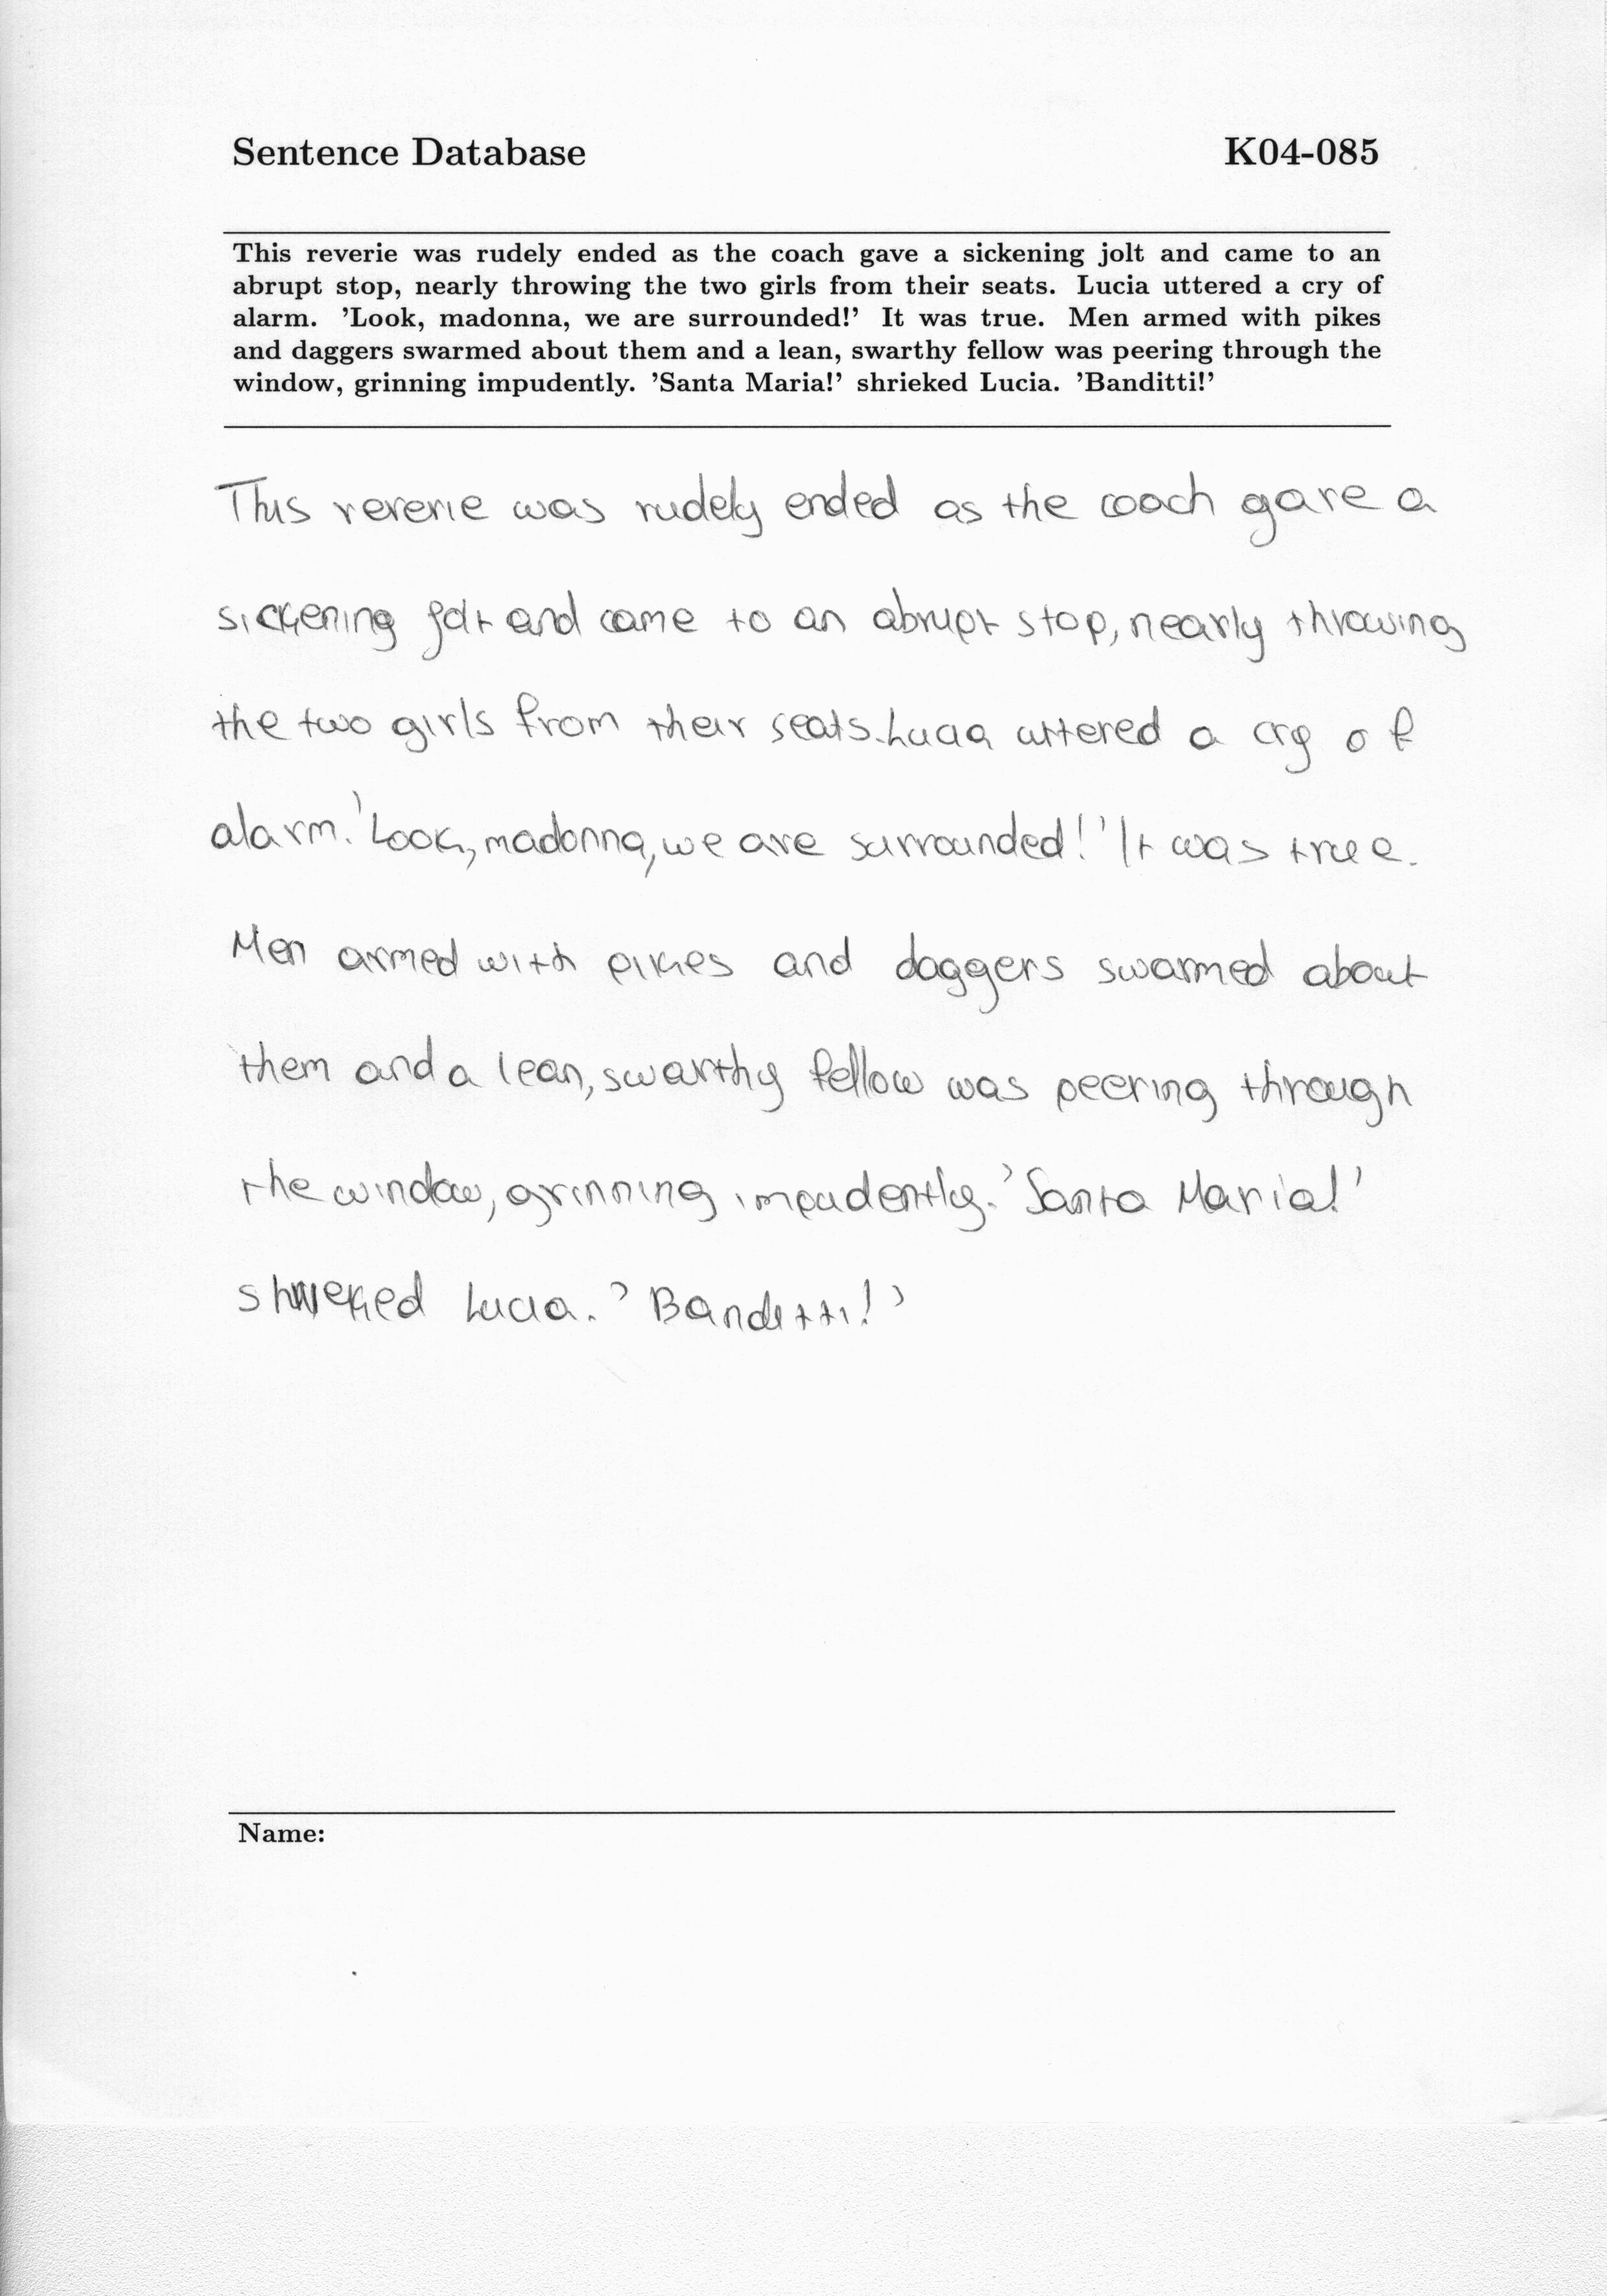 Sentence Database K04-085
This reverie was rudely ended as the coach gave a sickening jolt and came to an
abrupt stop, nearly throwing the two girls from their seats. Lucia uttered a cry of
alarm. 'Look, madonna, we are surrounded!' It was true. Men armed with pikes
and daggers swarmed about them and a lean, swarthy fellow was peering through the
window, grinning impudently. 'Santa Maria!' shrieked Lucia. 'Banditti!'
This reverie was rudely ended as the coach gave a
sickening jolt and came to an abrupt stop, nearly throwing
the two girls from their seats. Lucia uttered a cry of
alarm. 'Look, madonna, we are surrounded!' It was true.
Men armed with pikes and daggers swarmed about
them and a lean, swarthy fellow was peering through
the window, grinning impudently. 'Santa Maria!'
shrieked Lucia. 'Banditti!'
Name: